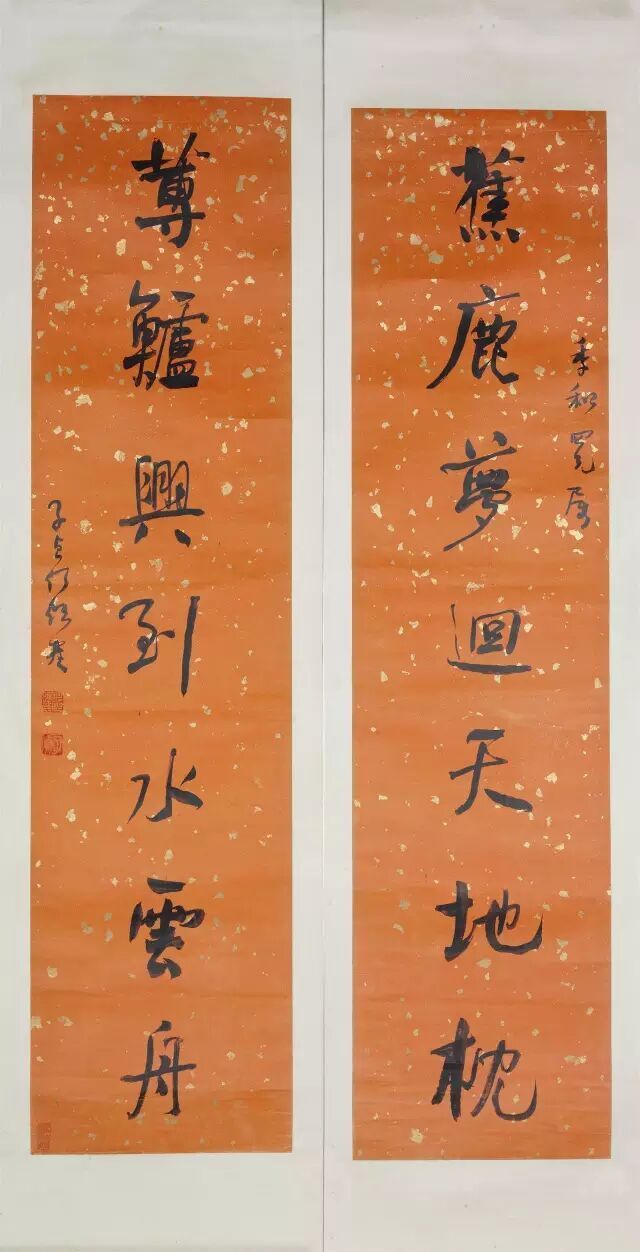 季和四兄属
蕉鹿夢迴天地枕
蓴鱸興到水雲舟
子貞何紹基